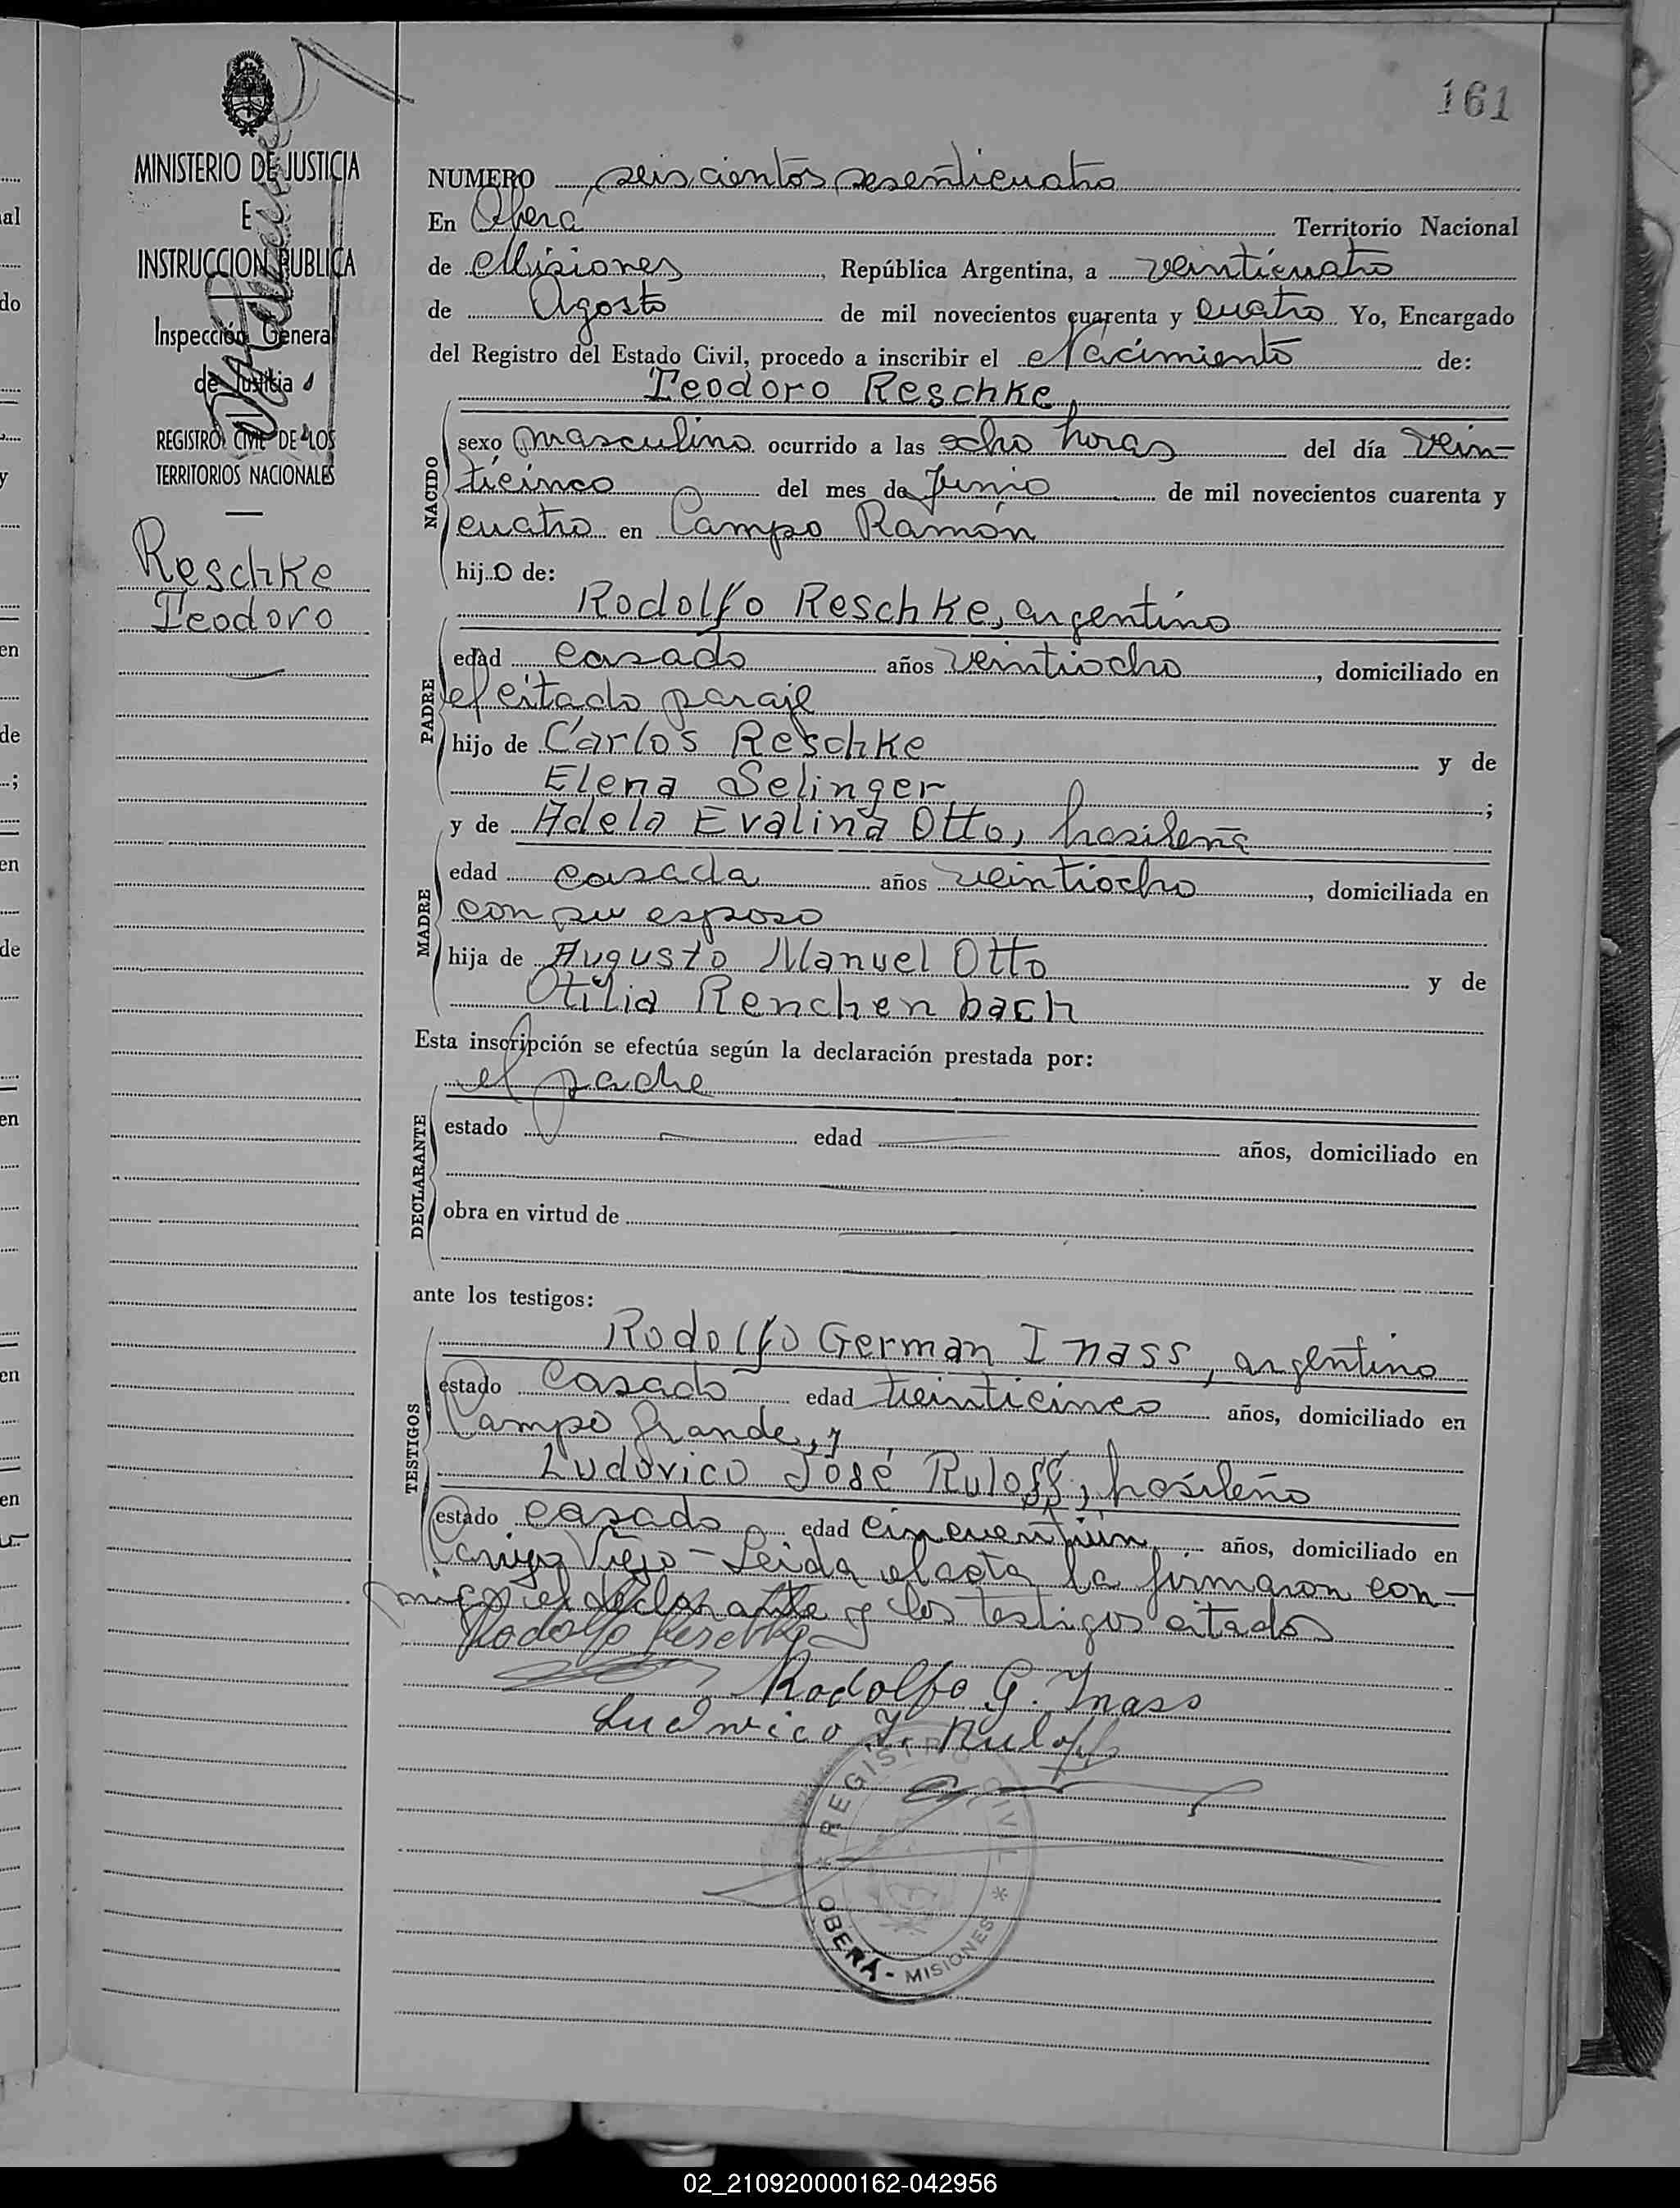 161
MINISTERIO DE JUSTICIA
E
INSTRUCCION PUBLICA
Inspección General
de Justicia
REGISTRO CIVIL DE LOS
TERRITORIOS NACIONALES
Reschke
Teodoro
NUMERO seiscientos sesenticuatro
En Oberá Territorio Nacional
de Misiones, República Argentina, a veinticuatro
de Agosto de mil novecientos cuarenta y cuatro Yo, Encargado
del Registro del Estado Civil, procedo a inscribir el Nacimiento de:
Teodoro Reschke,
NACIDO
sexo masculino ocurrido a las ocho horas del día vein-
ticinco del mes de Junio de mil novecientos cuarenta y
cuatro en Campo Ramón
hijo de:
Rodolfo Reschke, argentino
PADRE
edad casado años veintiocho, domiciliado en
el citado paraje
hijo de Carlos Reschke y de
Elena Selinger;
y de Adela Evalina Otto, brasileña
MADRE
edad casada años veintiocho, domiciliada en
con su esposo
hija de Augusto Manuel Otto y de
Otilia Renchenbach
Esta inscripción se efectúa según la declaración prestada por:
el padre
DECLARANTE
estado edad años, domiciliado en
obra en virtud de
ante los testigos:
Rodolfo German Inass, argentino
TESTIGOS
estado Casado edad veinticinco años, domiciliado en
Campo Grande, y
Ludovico José Ruloff, brasileño
estado casado edad cincuentiún años, domiciliado en
Viejo - Leida el acta la firmaron con-
migo el declarante y los testigos citados
Rodolfo Reschke
Rodolfo G. Inass
Ludovico J. Ruloff
REGISTRO CIVIL
OBERÁ - MISIONES
al
do
y
en
de
;
en
de
en
en
en
02_210920000162-042956